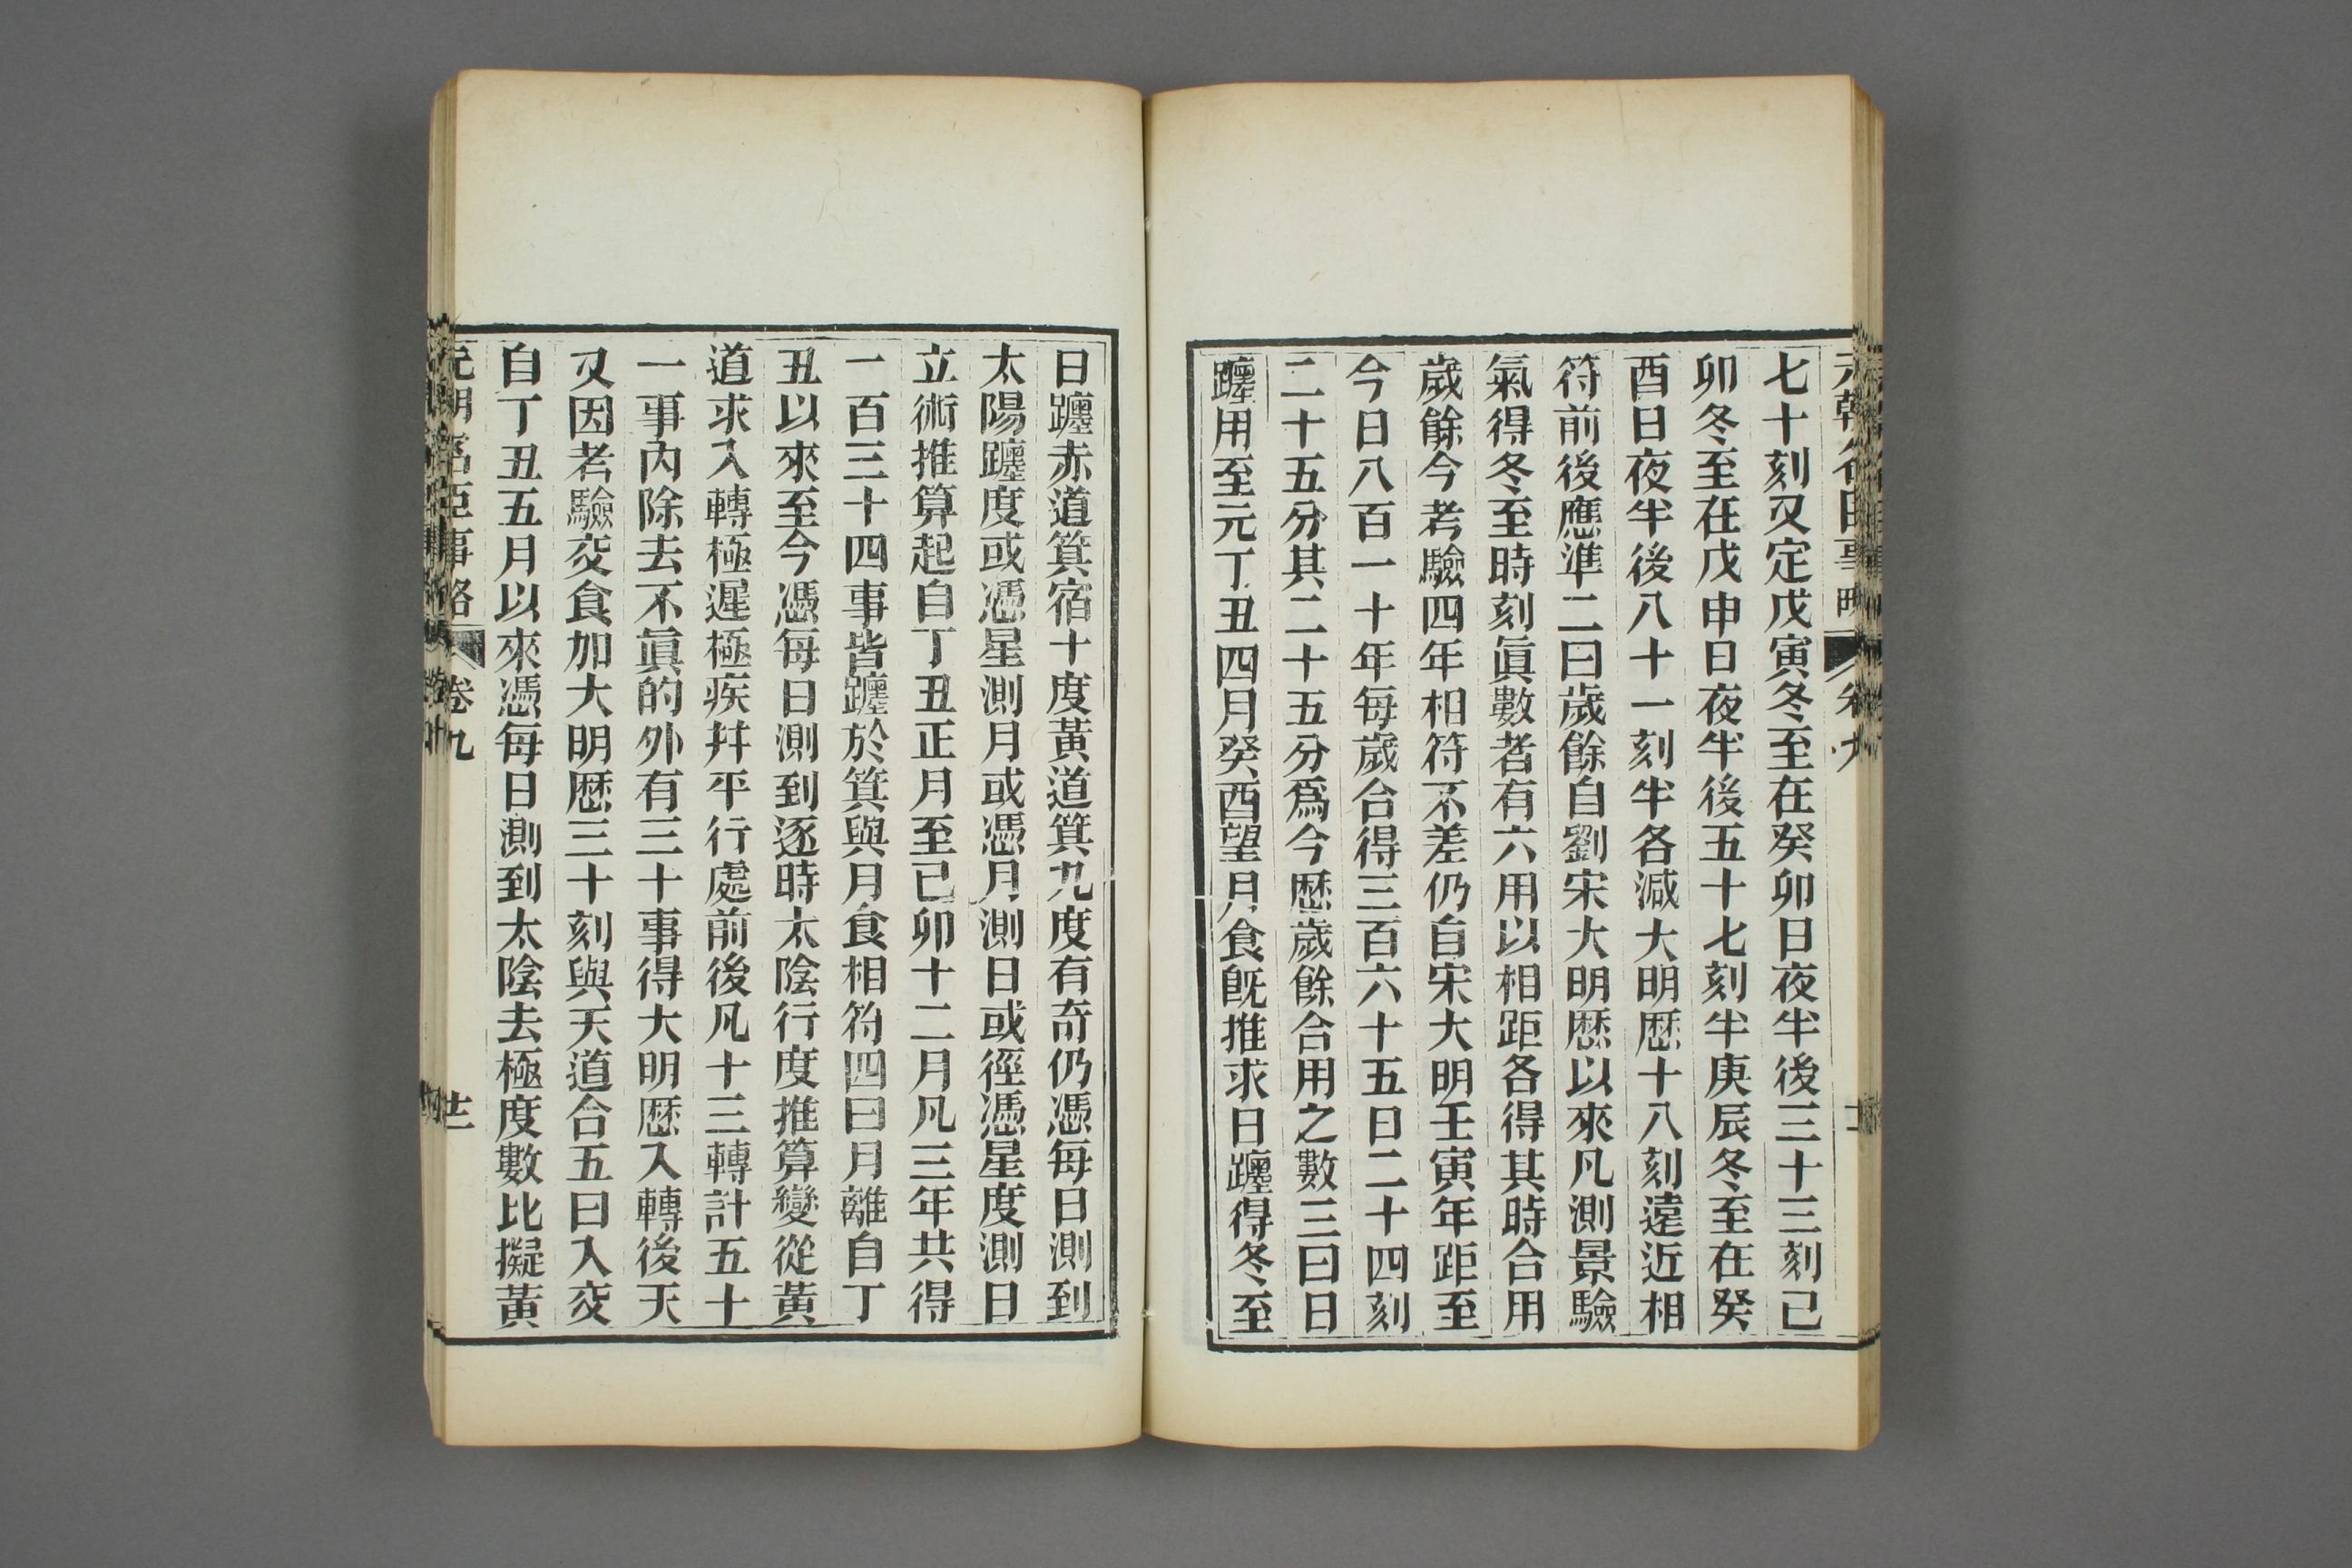 七十刻又定戊寅冬至在癸卯日夜半後三十三刻己
卯冬至在戊申日夜半後五十七刻半庚辰冬至在癸
酉日夜半後八十一刻半各減大明歷十八刻遠近相
符前後應準二曰歲餘自劉宋大明歷以來凡測景驗
氣得冬至時刻眞數者有六用以相距各得其時合用
歲餘今考驗四年相符不差仍自宋大明壬寅年距至
今日八百一十年每歲合得三百六十五日二十四刻
二十五分其二十五分爲今歷歲餘合用之數三曰日
躔用至元丁丑四月癸酉望月食旣推求日躔得冬至
日躔赤道箕宿十度黃道箕九度有奇仍憑每日測到
太陽躔度或憑星測月或憑月測日或徑憑星度測日
立術推算起自丁丑正月至己卯十二月凡三年共得
一百三十四事皆躔於箕與月食相符四曰月離自丁
丑以來至今憑每日測到逐時太陰行度推算變從黃
道求入轉極遲極疾幷平行處前後凡十三轉計五十
一事內除去不眞的外有三十事得大明歷入轉後天
又因考驗交食加大明歷三十刻與天道合五曰入交
自丁丑五月以來憑每日測到太陰去極度數比擬黃
元朝名臣事略 卷九